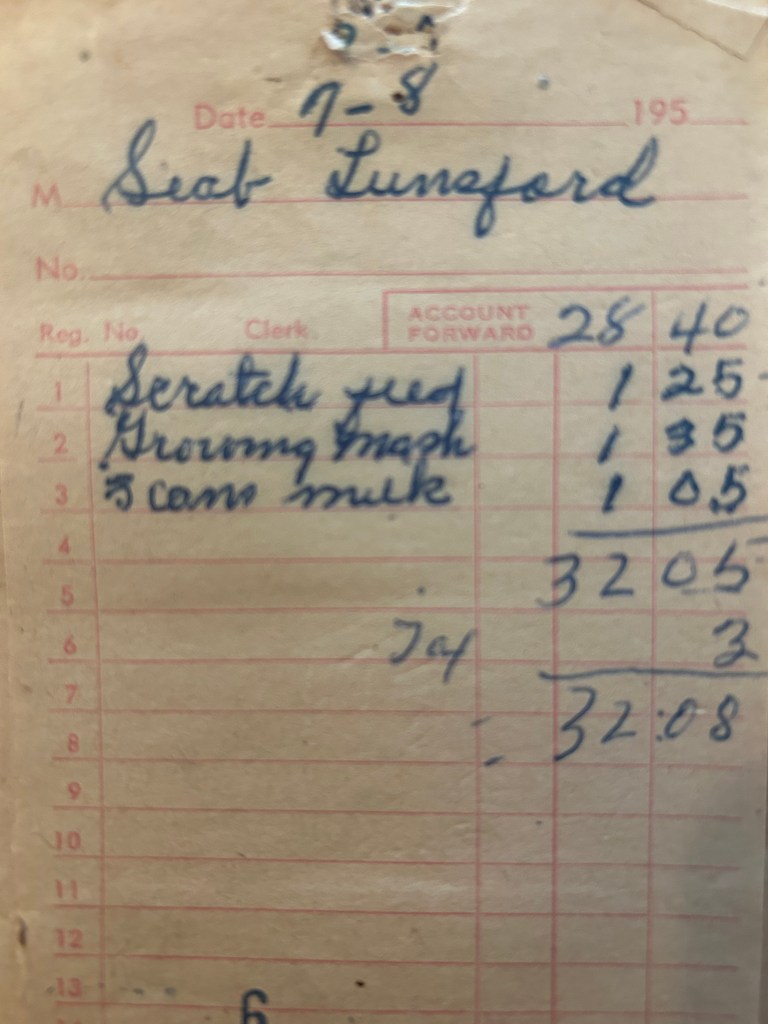 Date 7-8 195
M Seab Lunsford
No.
Reg. No. Clerk. ACCOUNT FORWARD 28 40
1 Scratch feed 1 25
2 Growing mash 1 35
3 3 cans milk 1 05
4
5 32 05
6 Tax 3
7
8 32:08
9
10
11
12
13
6